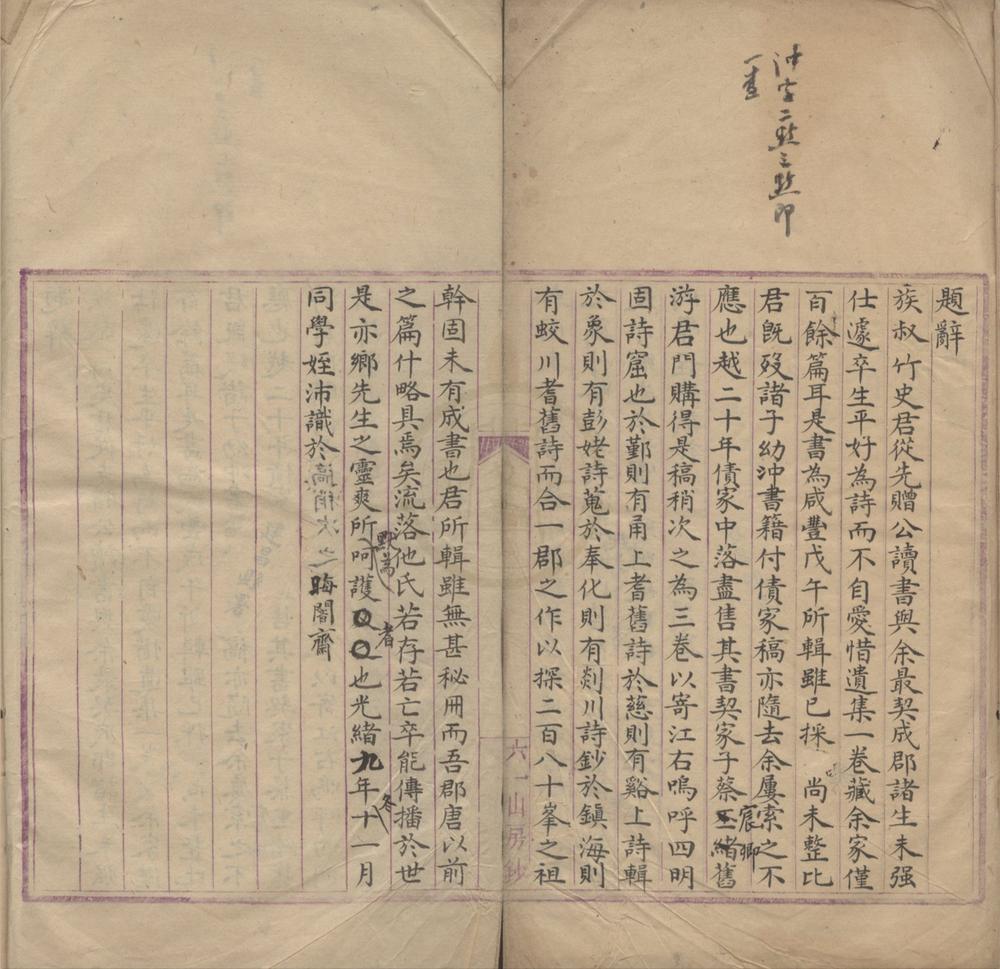 冲字二點三點印
一畫
題辭
族叔竹史君從先贈公讀書與余最契成郡諸生未强
仕遽卒生平好為詩而不自愛惜遺集一卷藏余家僅
百餘篇耳是書為咸豐戊午所輯雖已採 尚未整比
君旣歿諸子幼沖書籍付債家稿亦隨去余屢索之不
應也越二十年債家中落盡售其書契家子蔡宸卿舊
游君門購得是稿稍次之為三卷以寄江右嗚呼四明
固詩窟也於鄞則有甬上耆舊詩於慈則有谿上詩輯
於象則有彭姥詩蒐於奉化則有剡川詩鈔於鎮海則
有蛟川耆舊詩而合一郡之作以探二百八十峯之祖
六一山房鈔
幹固未有成書也君所輯雖無甚秘冊而吾郡唐以前
之篇什略具焉矣流落他氏若存若亡卒能傳播於世
是亦鄉先生之靈爽所默為呵護者也光緒九年冬十一月
同學姪沛識於 晦闇齋